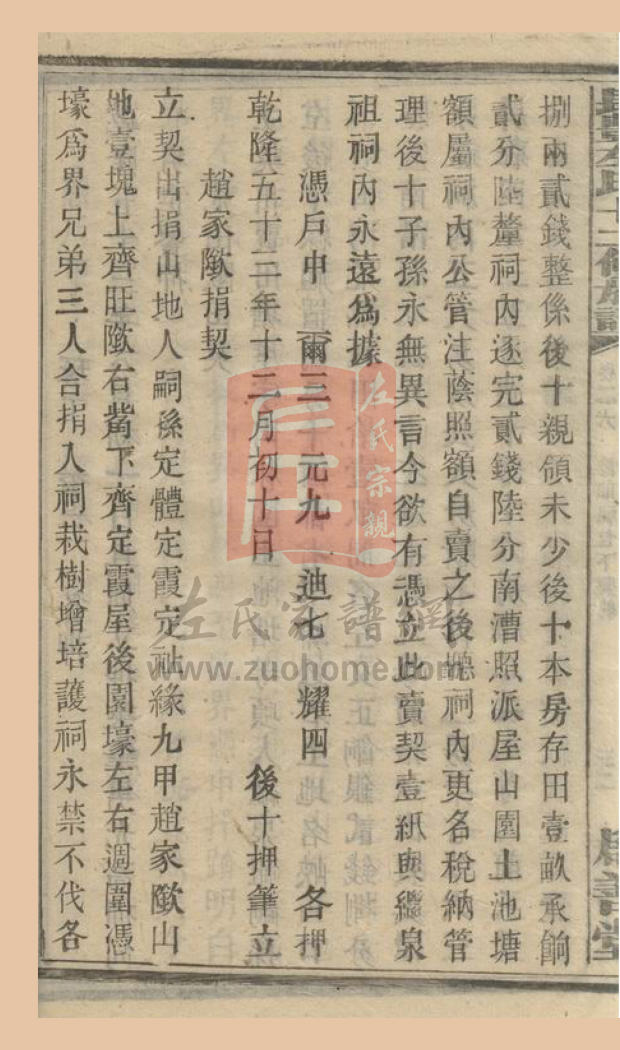 捌兩貳錢整係後十親領未少後十本房存田壹畝承餉
貳分陸釐祠內逐完貳錢陸分南漕照派屋山園土池塘
額屬祠內公管注蔭照額自賣之後聽祠內更名稅納管
理後十子孫永無異言今欲有憑立此賣契壹紙與繼泉
祖祠內永遠爲據
憑戶中 爾三 元九 迪七 耀四 各押
乾隆五十三年十二月初十日 後十押筆立
趙家隞捐契
立契出捐山地人嗣孫定體定霞定祉緣九甲趙家隞山
地壹塊上齊旺隞右嵅下齊定霞屋後園壕左右週圍憑
壕爲界兄弟三人合捐入祠栽樹增培護祠永禁不伐各
左氏宗親
左氏宗譜網
www.zuohome.com